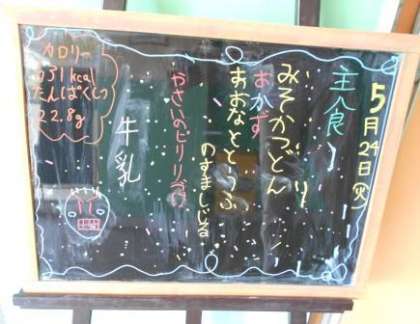 5月24日(火)
主食
みそかつどん
おかず
あおなととうふ
のすましじる
やさいのピリリづけ
牛乳
カロリー
kcal
たんぱくしつ
22.8g